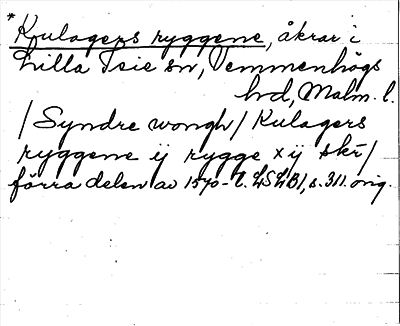 *Kulagers ryggene, åkrar i
Lilla Isie sn, Vemmenhögs
hd, Malm. l.
/Syndre wongh/ Kulagers
ryggene ij rygge x ij skr̄/
förra delen av 1570-t. LSLB1, s. 311. orig.